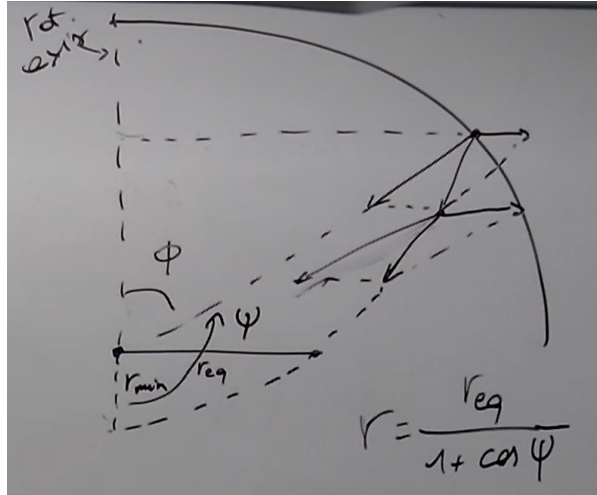 rot.
axis
Φ
Ψ
r_min r_eq
r = r_eq / (1 + cos Ψ)